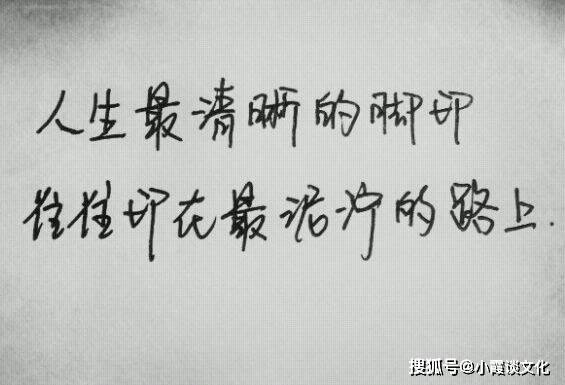 人生最清晰的脚印
往往印在最泥泞的路上.
搜狐号@小霞谈文化